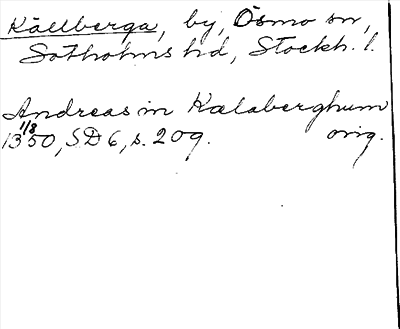 Källberga, by, Ösmo sn,
Sotholms hd, Stockh. l.
Andreas in Kælaberghum
1350 1/8, SD 6, s. 209. orig.